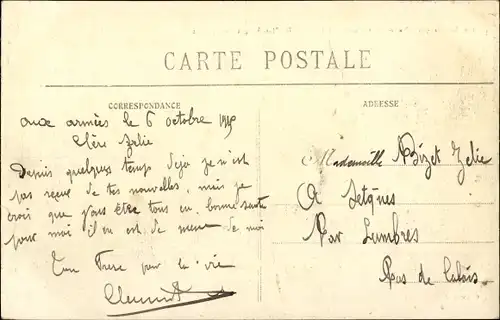 CARTE POSTALE
CORRESPONDANCE
aux armées le 6 octobre
Chère Zélie
Depuis quelques temps déja je n'est
pas reçue de tes nouvelles, mais je
crois que vous être tous en bonne santé
pour moi il en est de meme de moi
Ton Frere pour la vie
Clement
ADRESSE
Mademoiselle Bizet Zelie
A Setques
Par Lumbres
Pas de Calais